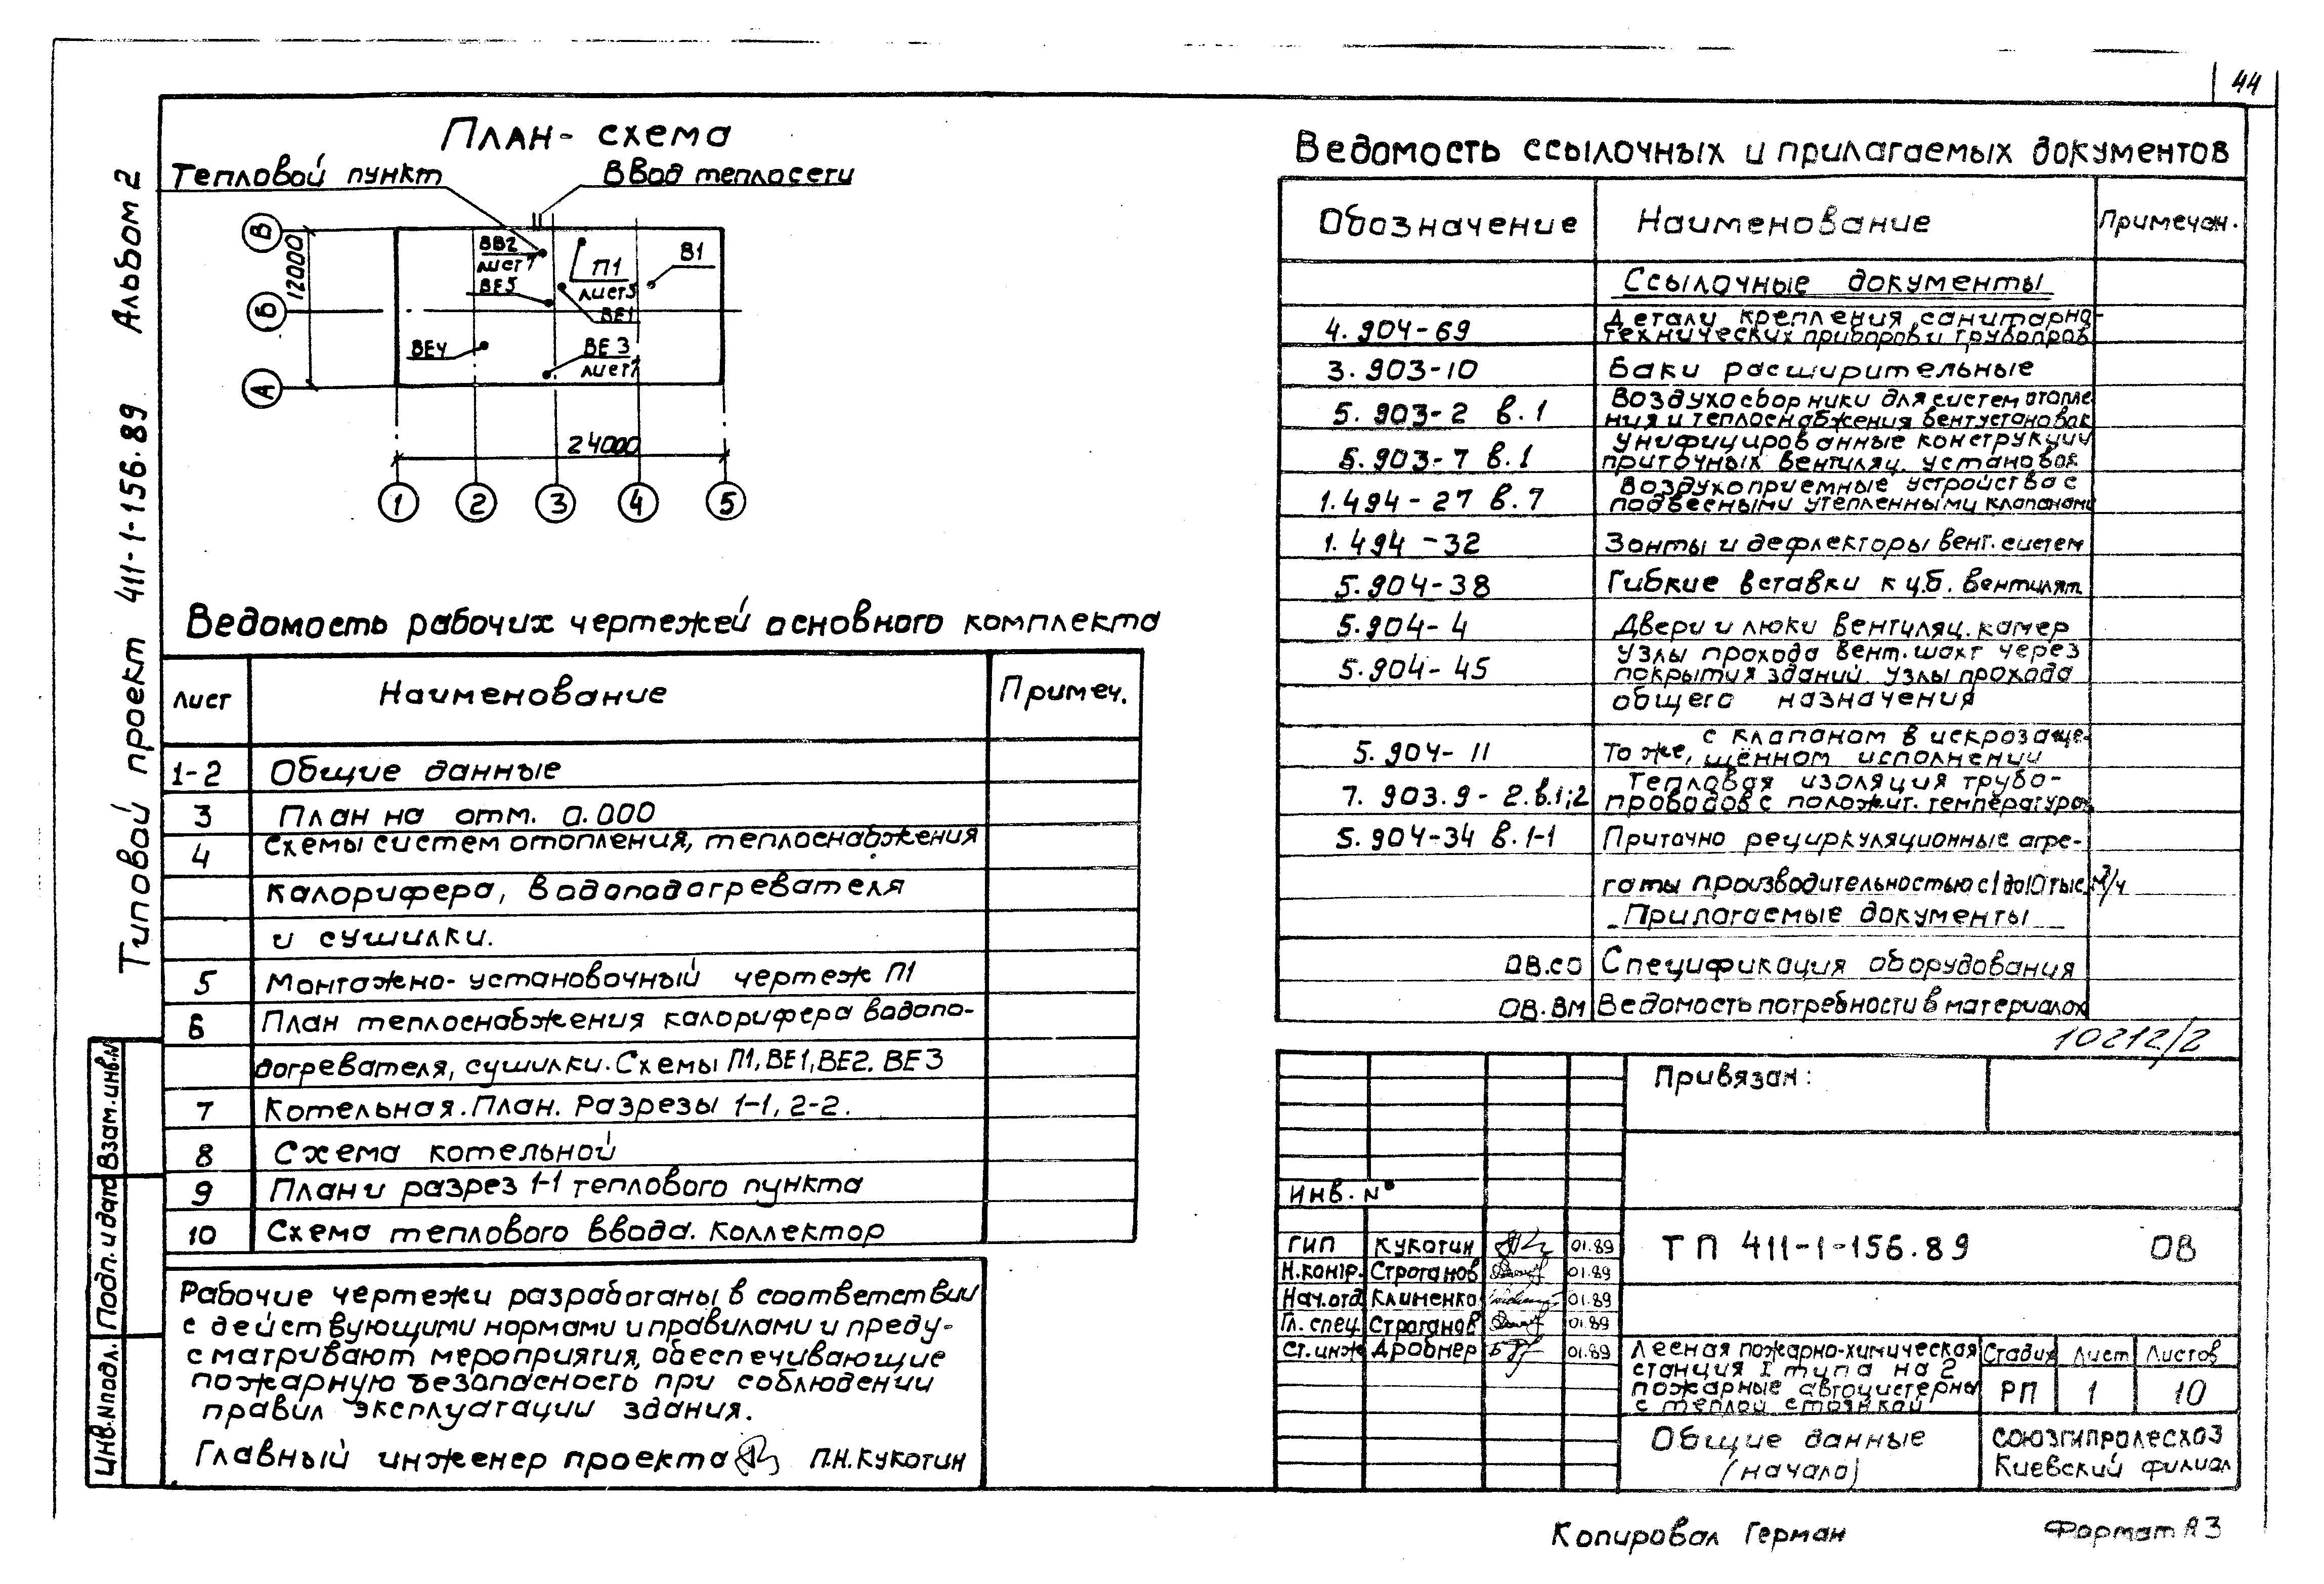 44
Типовой проект 411-1-156.89 Альбом 2
План-схема
Тепловой пункт
Ввод теплосети
В
Б
А
12000
ВВ2
лист 7
ВЕ5
П1
лист 5
В1
ВЕ1
ВЕ4
ВЕ3
лист 7
24000
1 2 3 4 5
Ведомость рабочих чертежей основного комплекта
лист Наименование Примеч.
1-2 Общие данные
3 План на отм. 0.000
4 Схемы систем отопления, теплоснабжения
калорифера, водоподогревателя
и сушилки.
5 Монтажно-установочный чертеж П1
6 План теплоснабжения калорифера водопо-
догревателя, сушилки. Схемы П1, ВЕ1, ВЕ2. ВЕ3
7 Котельная. План. Разрезы 1-1, 2-2.
8 Схема котельной
9 План и разрез 1-1 теплового пункта
10 Схема теплового ввода. Коллектор
Рабочие чертежи разработаны в соответствии
с действующими нормами и правилами и преду-
сматривают мероприятия, обеспечивающие
пожарную безопасность при соблюдении
правил эксплуатации здания.
Главный инженер проекта П.Н. Кукотин
Взам. инв. №
Подп. и дата
Инв. № подл.
Ведомость ссылочных и прилагаемых документов
Обозначение Наименование Примечан.
Ссылочные документы
4. 904-69 Детали крепления санитарно-
технических приборов и трубопров
3. 903-10 Баки расширительные
5. 903-2 в.1 Воздухосборники для систем отопле
ния и теплоснабжения вентустановок
5. 903-7 в.1 Унифицированные конструкции
приточных вентиляц. установок
1. 494-27 в.7 Воздухоприемные устройства с
подвесными утепленными клапанами
1. 494-32 Зонты и дефлекторы вент. систем
5. 904-38 Гибкие вставки к ц.б. вентилят.
5. 904-4 Двери и люки вентиляц. камер
5. 904-45 Узлы прохода вент. шахт через
покрытия зданий. Узлы прохода
общего назначения
5. 904-11 То же, с клапаном в искрозаще-
щённом исполнении
7. 903.9-2. в.1;2 Тепловая изоляция трубо-
проводов с положит. температурой
5. 904-34 в. 1-1 Приточно рециркуляционные агре-
гаты производительностью с 1 до 10 тыс. м³/ч
Прилагаемые документы
ОВ.СО Спецификация оборудования
ОВ.ВМ Ведомость потребности в материалах
10212/2
Привязан:
Инв. №
ГИП Кукотин 01.89
Н.контр. Строганов 01.89
Нач.отд Клименко 01.89
Гл. спец. Строганов 01.89
Ст.инж Дробнер 01.89
ТП 411-1-156.89 ОВ
Лесная пожарно-химическая
станция I типа на 2
пожарные автоцистерны
с теплой стоянкой
Стадия Лист Листов
РП 1 10
Общие данные
(начало)
СОЮЗГИПРОЛЕСХОЗ
Киевский филиал
Копировал Герман
Формат А3